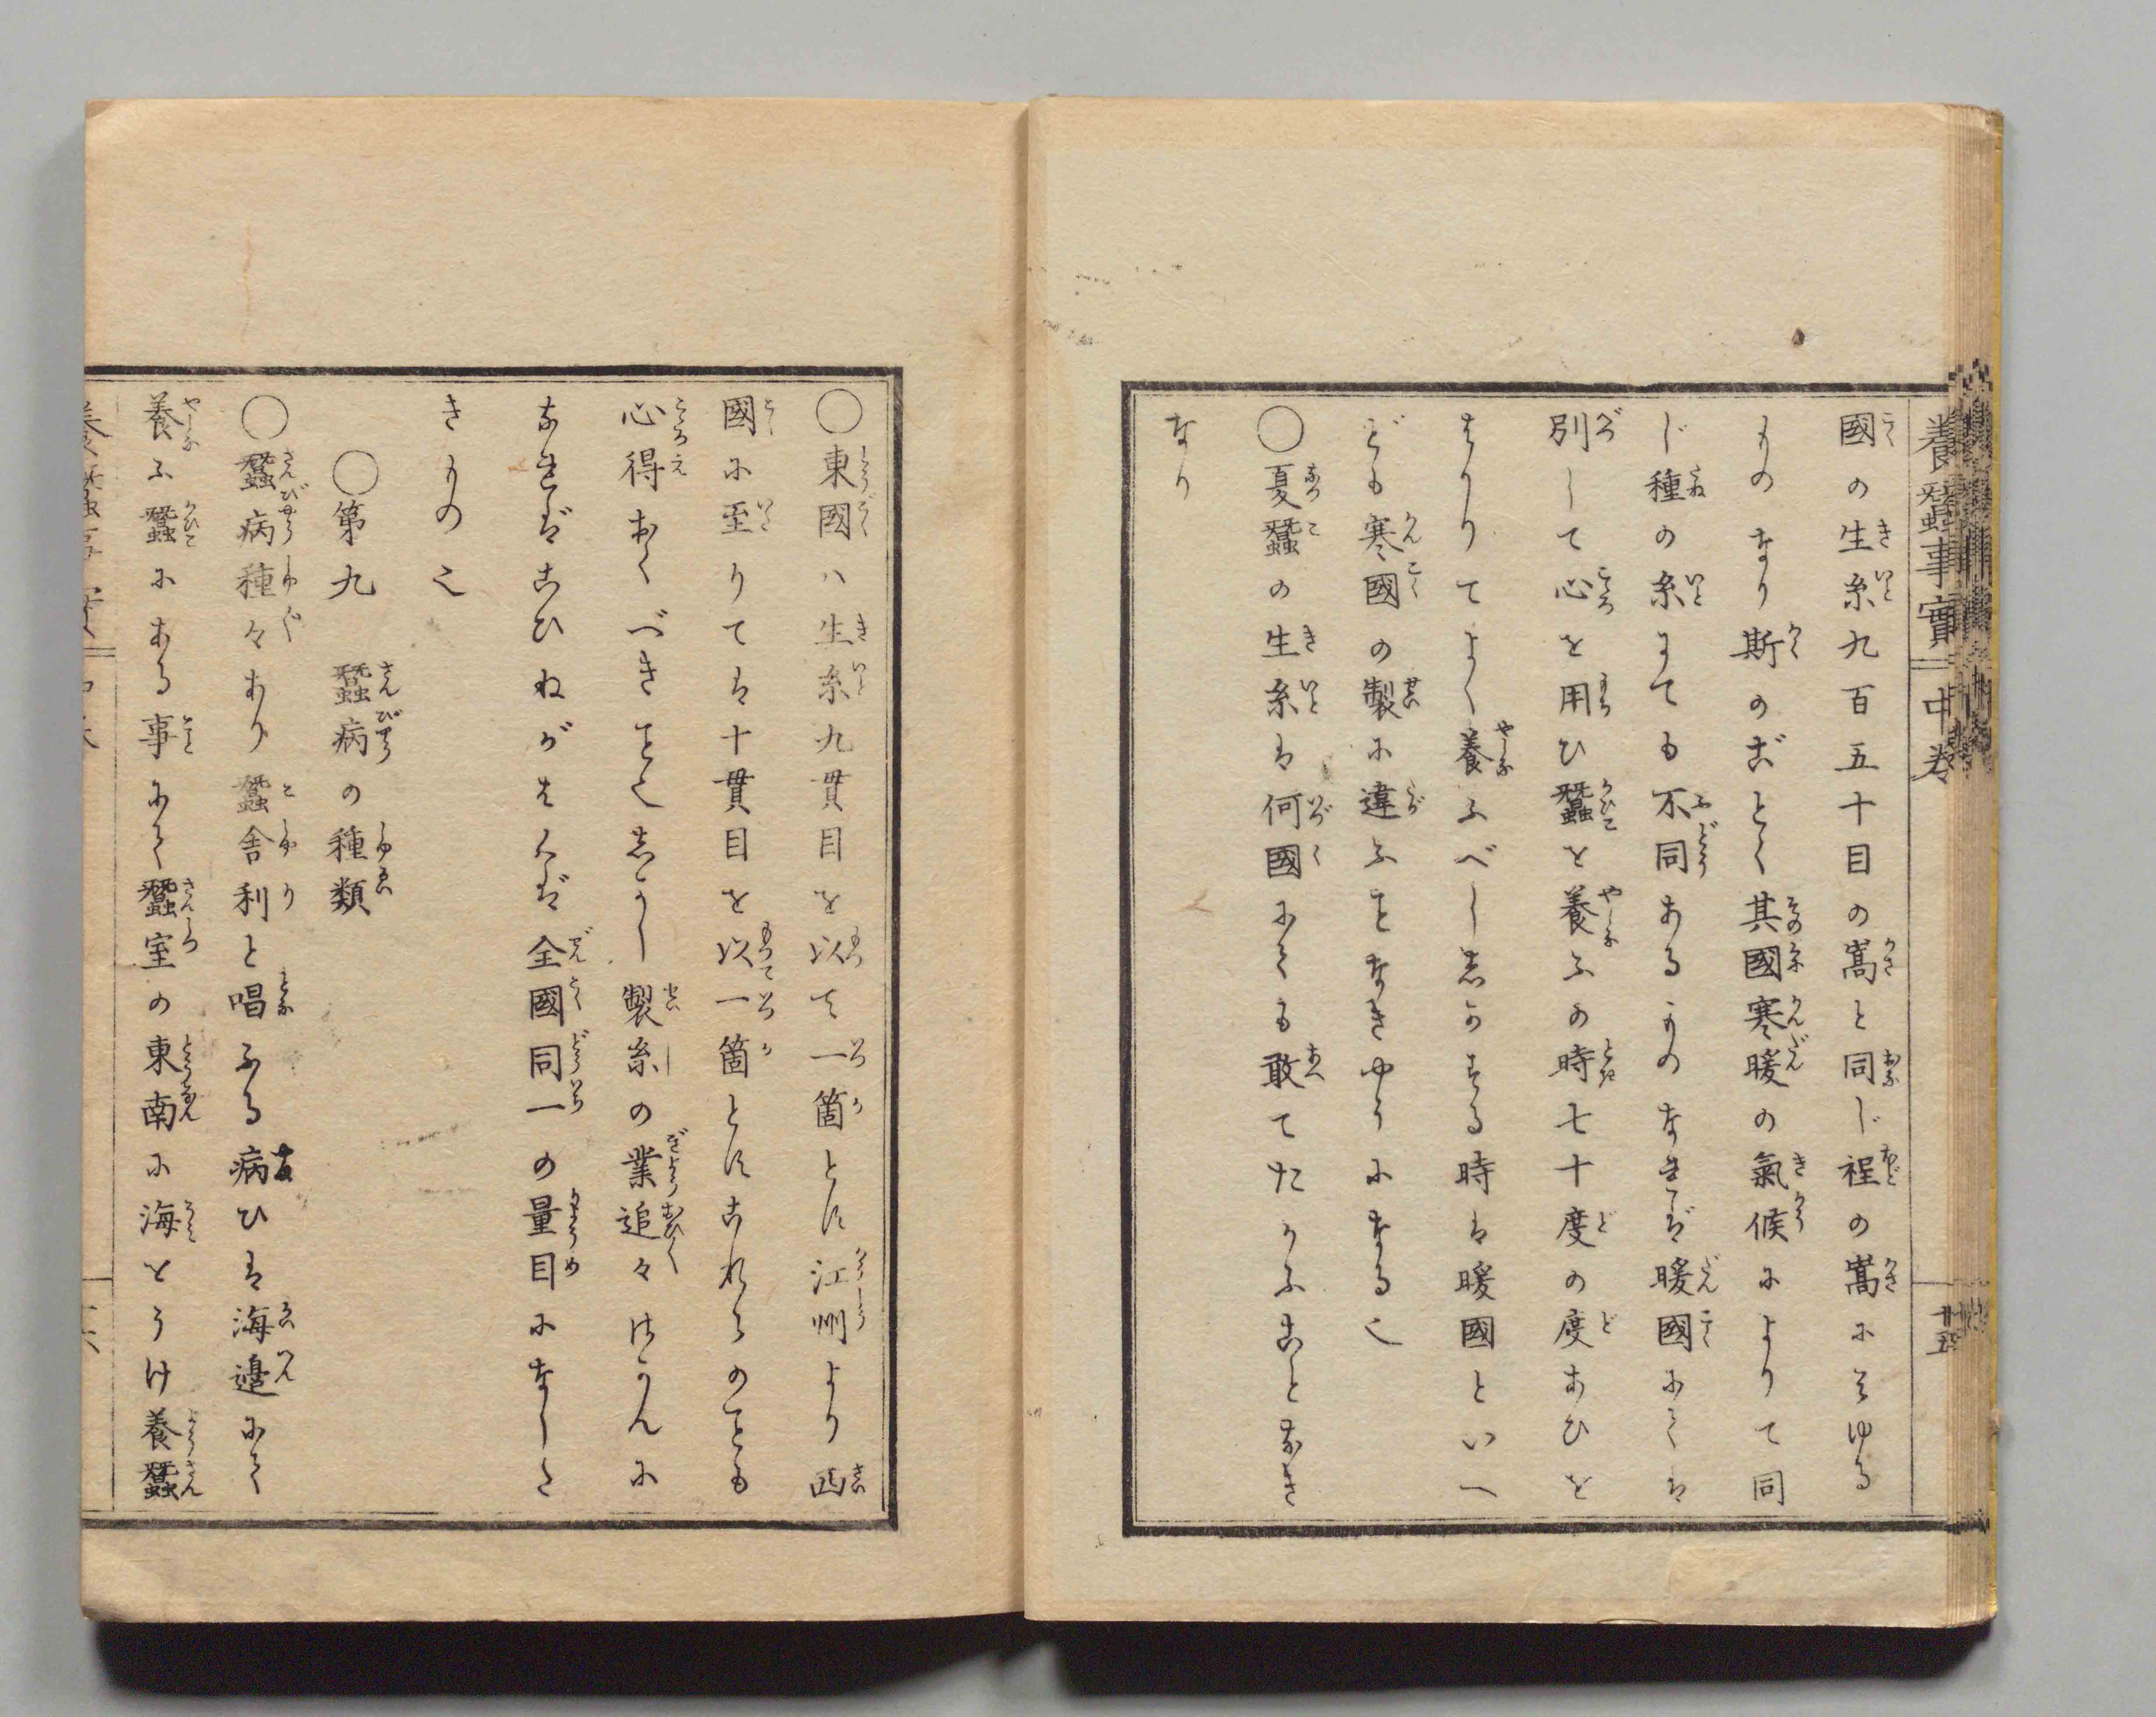 養蠶事實 中巻 廿五
國の生糸九百五十目の嵩と同じ程の嵩にみゆる
ものなり斯のごとく其國寒暖の氣候によりて同
じ種の糸までも不同あるものなれば暖國にては
別して心を用ひ蠶を養ふの時七十度の度あひを
はかりてよく養ふべし志かする時は暖國といへ
ども寒國の製に違ふことなきやうになる也
〇夏蠶の生糸は何國にても敢てたかふことなき
なり
〇東國ハ生糸九貫目を以て一箇とす江州より西
國に至りては十貫目を以一箇とすこれらのことも
心得おくべきこと也志かし製糸の業追々はかんに
なればこひねがはくば全國同一の量目になした
きもの也
〇第九 蠶病の種類
〇蠶病種々あり蠶舎利と唱ふる病ひは海邉にて
養ふ蠶にある事にて蠶室の東南に海をうけ養蠶